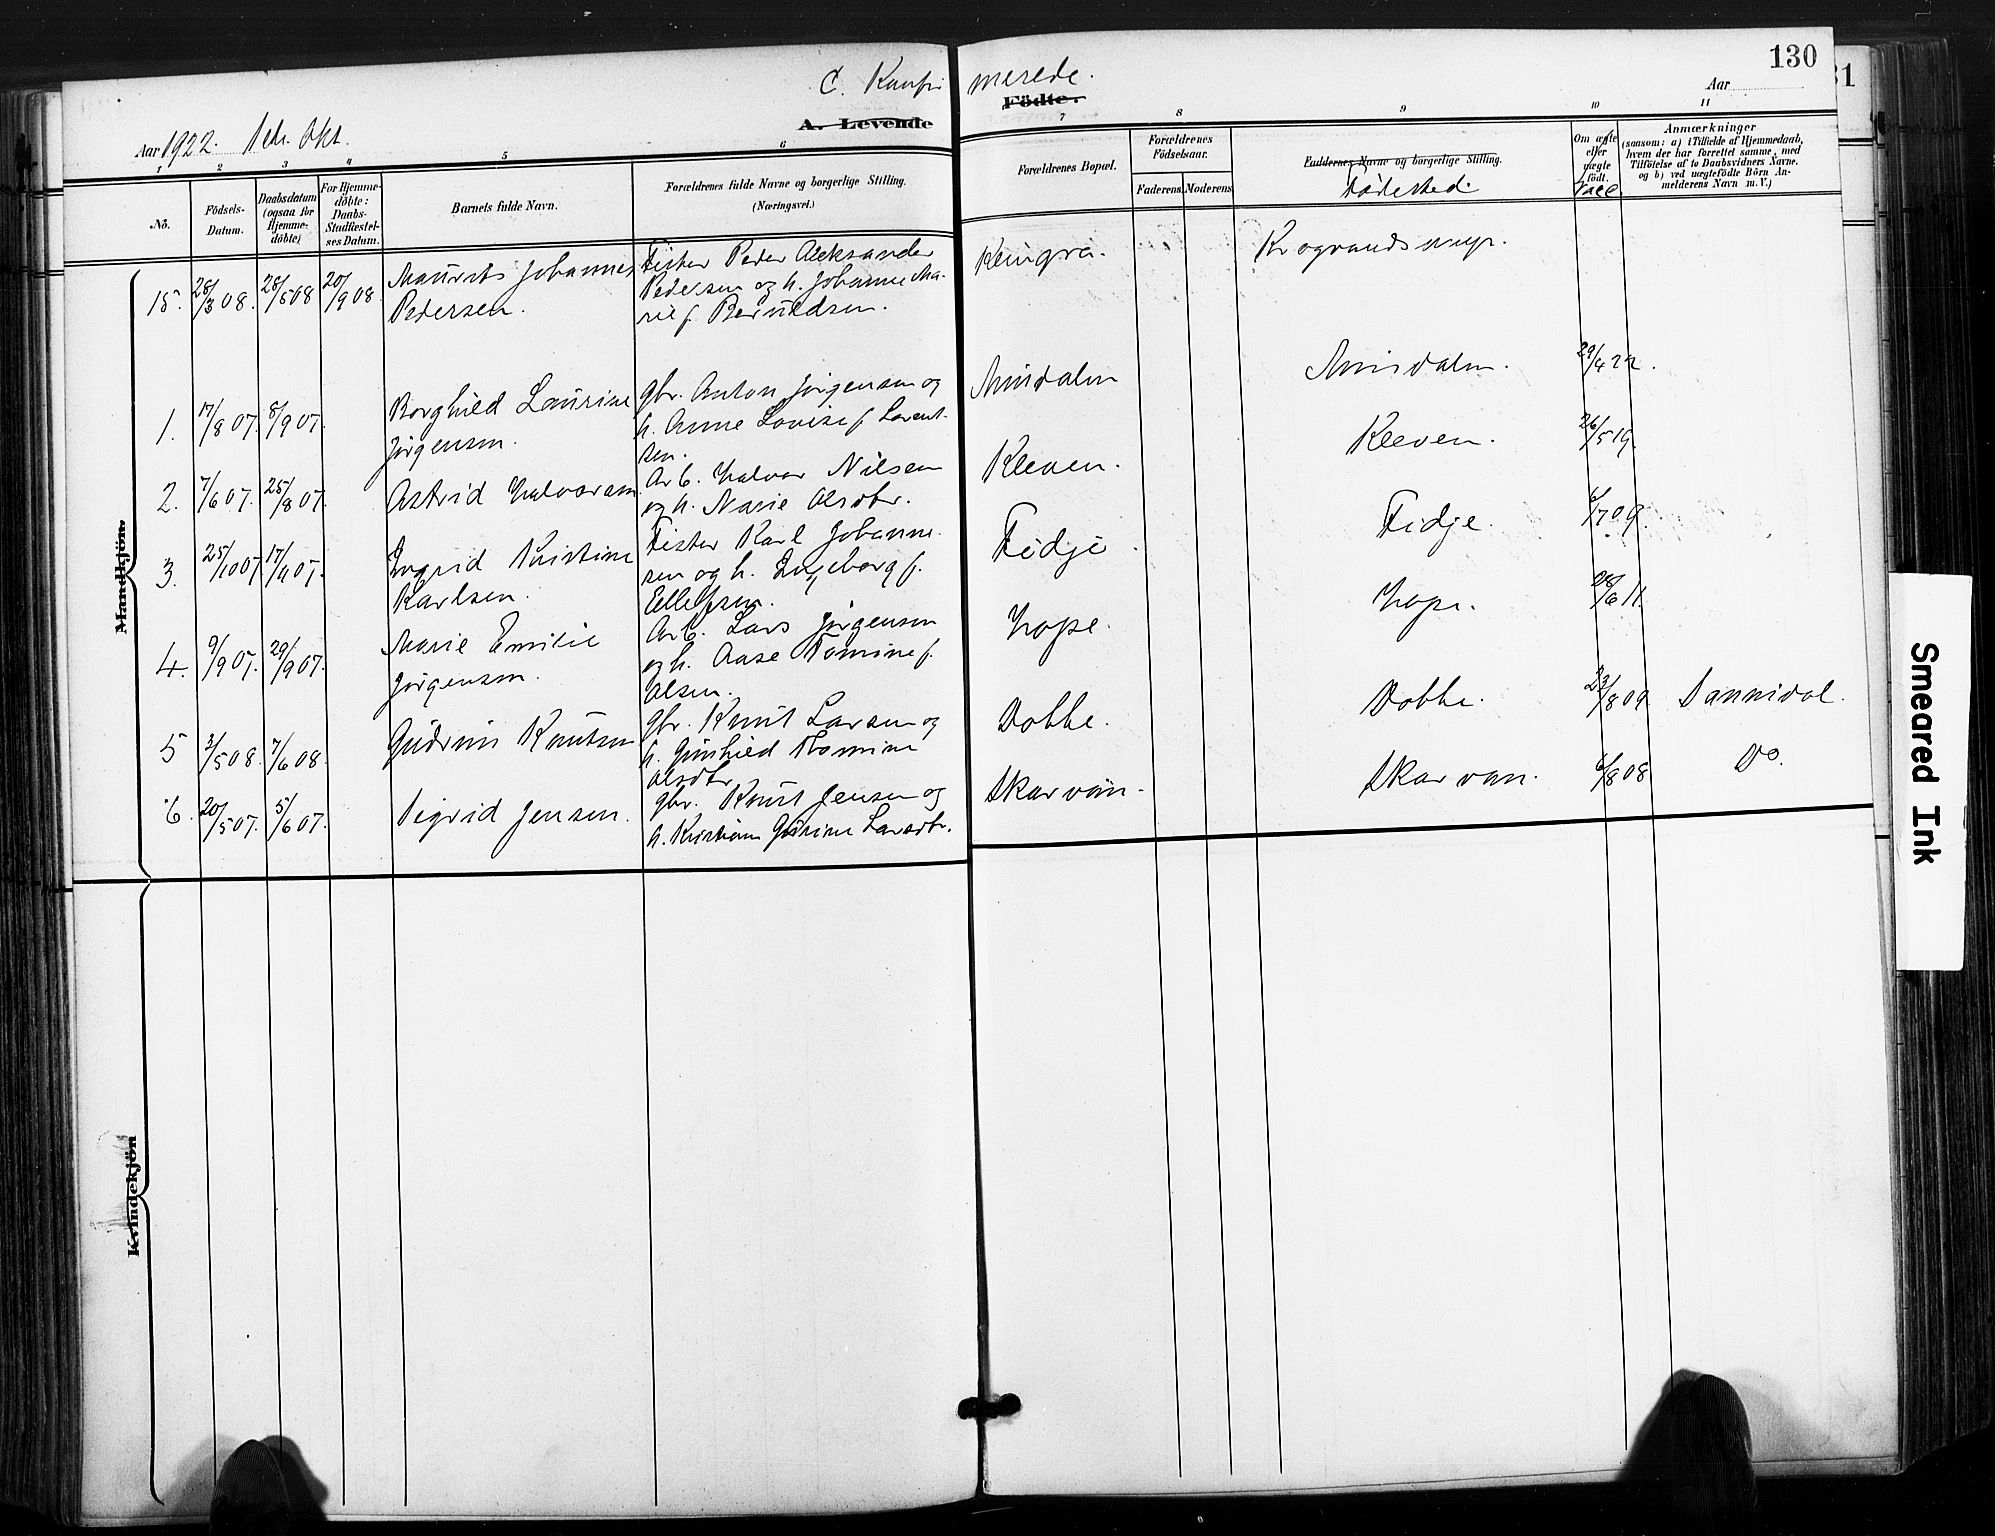 130
31
C. Konfir merede.
A. Levende Födte.
Aar 1922. 1ste Okt.
Aar
1 2 3 4 5 6 7 8 9 10 11
No.
Födsels-
Datum.
Daabsdatum
(ogsaa for
Hjemme-
döbte)
For Hjemme-
döbte:
Daabs-
Stadfæstel-
ses Datum.
Barnets fulde Navn.
Forældrenes fulde Navne og borgerlige Stilling.
(Næringsvei.)
Forældrenes Bopæl.
Forældrenes
Födselsaar.
Faderens. Moderens.
Faddernes Navne og borgerlige Stilling.
Födested.
Om ægte
eller
uægte
födt.
Vacc.
Anmærkninger
(saasom: a) i Tilfælde af Hjemmedaab,
hvem der har forrettet samme, med
Tilföielse af to Daabsvidners Navne.
og b) ved uægtefödte Börn An-
melderens Navn m. V.)
Mandkjön.
15. 28/3 08. 28/5 08 20/9 08. Maurits Johannes
Pedersen.
Fisker Peder Aleksander
Pedersen og h. Johanne Ma-
rie f. Berntdsen.
1. 17/8 07. 8/9 07. Borghild Laurine
Jørgensen.
gbr. Anton Jørgensen og
h. Anne Lovise f. Lorent-
sen.
29/4 22.
2. 7/6 07. 25/8 07. Astrid Halvorsen
Arb. Halvor Nilsen
og h. Marie Olsdtr.
Kleven. Kleven. 26/5 19.
3. 25/10 07. 17/11 07. Ingrid Kristine
Karlsen.
Fisker Karl Johanne-
sen og h. Ingeborg f.
Ellefsen.
Fidje. Fidje. 6/7 09.
4. 9/9 07. 29/9 07. Marie Emilie
Jørgensen.
Arb. Lars Jørgensen
og h. Aase Tomine f.
Olsen.
Hope. Hope. 28/6 11.
5 3/5 08. 7/6 08. Gudrun Knutsen
gbr. Knut Larsen og
h. Gunhild Tomine
Olsdtr.
Dobbe. Dobbe. 23/8 09. Sannidal.
6. 20/5 07. 5/6 07. Sigrid Jensen.
gbr. Knut Jensen og
h. Kristiane Gurine Larsdtr.
Skarvan. Skarvan. 6/8 08 Do.
Kvindekjön
Smeared Ink